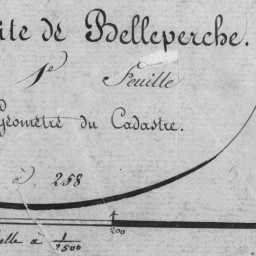 ite de Belleperche.
1e Feuille
Géomètre du Cadastre.
à 258
200
elle à 1/2500